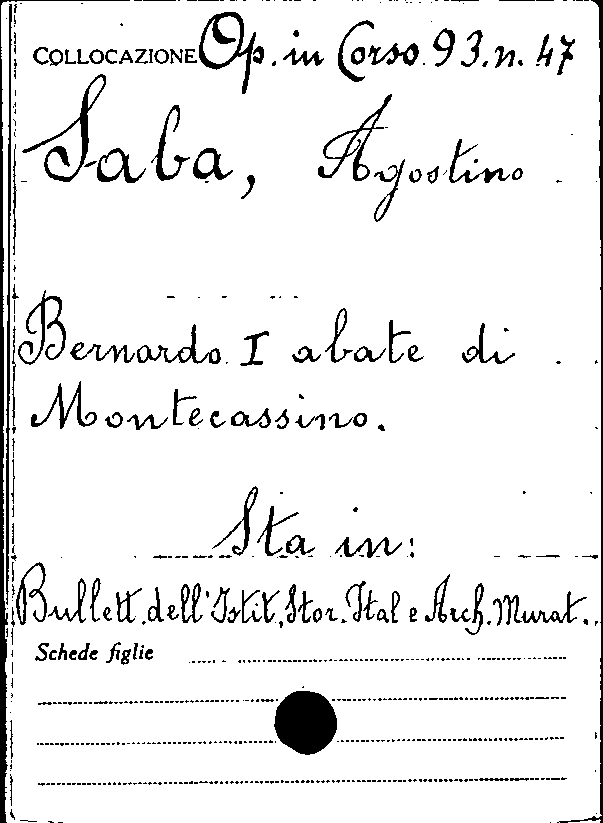 COLLOCAZIONE Op. in Corso 93. n. 47
Saba, Agostino
Bernardo I abate di
Montecassino.
Sta in:
Bullett. dell'Istit. Stor. Ital e Arch. Murat.
Schede figlie